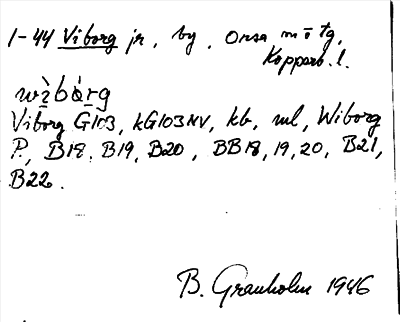 1-44 Viborg jr, by, Orsa m o tg,
Kopparb. l.
wìbórg
Viborg G103, kG103NV, kb, ml, Wiborg
P., B18, B19, B20, BB18, 19, 20, B21,
B22.
B. Granholm 1946